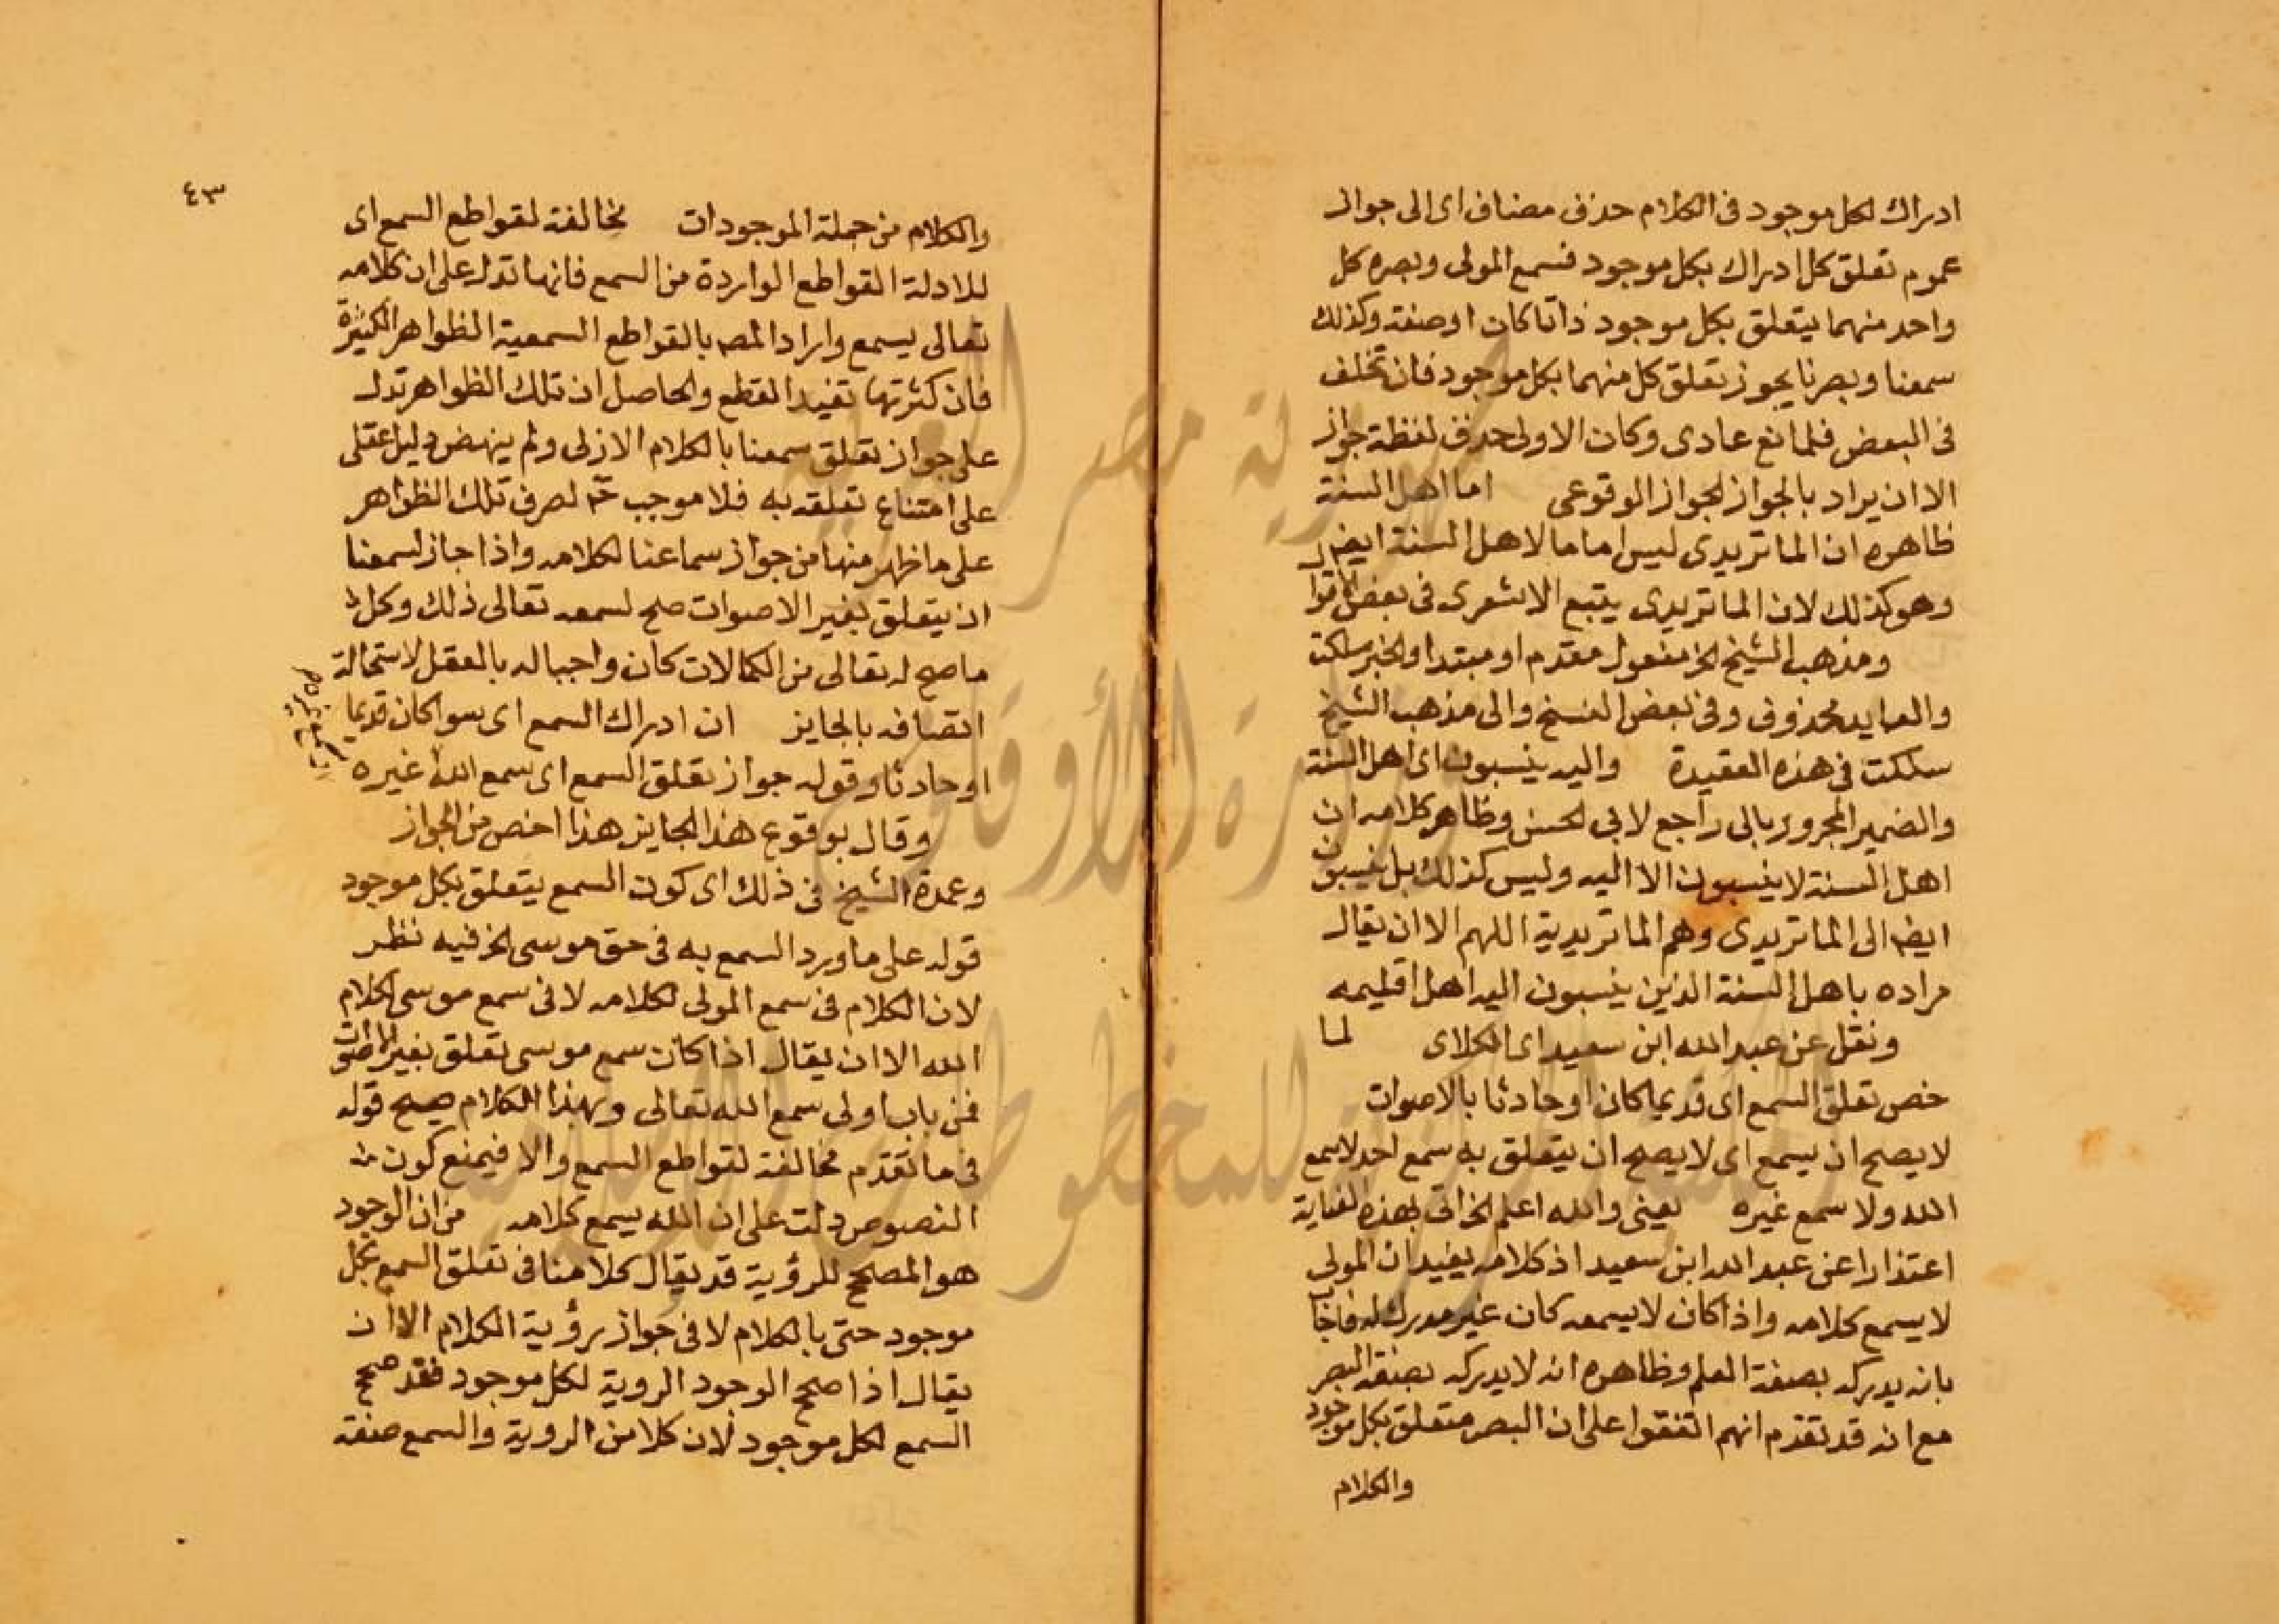 ادراك لكل موجود فى الكلام حذف مضاف اى الى جواز
عموم تعلق كل ادراك بكل موجود فسمع المولى وبصره كل
واحد منهما يتعلق بكل موجود ذاتا كان او صفة وكذلك
سمعنا وبصرنا يجوز تعلق كل منهما بكل موجود فان تخلف
فى البعض فلمانع عادى وكان الاولى حذف لفظة جواز
الا ان يراد بالجواز الجواز الوقوعى اما اهل السنة
ظاهره ان الماتريدى ليس اماما لاهل السنة ايضا
وهو كذلك لان الماتريدى يتبع الاشعرى فى بعض الاقوال
ومذهب الشيخ الخ مفعول مقدم او مبتدا والخبر سلكت
والعايد محذوف وفى بعض النسخ والى مذهب الشيخ
سلكت فى هذه العقيدة واليه ينسبون اى اهل السنة
والضمير المجرور بالى راجع لابى الحسن وظاهر كلامه ان
اهل السنة لا ينسبون الا اليه وليس كذلك بل ينسبون
ايضا الى الماتريدى وهم الماتريدية اللهم الا ان يقال
مراده باهل السنة الذين ينسبون اليه اهل اقليمه
ونقل عن عبد الله ابن سعيد اى الكلاى لما
خص تعلق السمع اى قديما كان او حادثا بالاصوات
لا يصح ان يسمع اى لا يصح ان يتعلق به سمع احد لا سمع
الله ولا سمع غيره يعنى والله اعلم الخ اتى بهذه العناية
اعتذارا عن عبد الله ابن سعيد اذ كلامه يفيد ان المولى
لا يسمع كلامه واذا كان لا يسمعه كان غير مدرك له فاجاب
بانه يدركه بصفة العلم وظاهره انه لا يدركه بصفة البصر
مع انه قد تقدم انهم اتفقوا على ان البصر متعلق بكل موجود
والكلام
٤٣
والكلام من جملة الموجودات مخالفة لقواطع السمع اى
للادلة القواطع الواردة من السمع فانها تدل على ان كلامه
تعالى يسمع واراد المصـ بالقواطع السمعية الظواهر الكثيرة
فان كثرتها تفيد القطع والحاصل ان تلك الظواهر تدل
على جواز تعلق سمعنا بالكلام الازلى ولم ينهض دليل عقلى
على امتناع تعلقه به فلا موجب ثم لصرف تلك الظواهر
على ما ظهر منها من جواز سماعنا لكلامه واذا جاز لسمعنا
ان يتعلق بغير الاصوات صح لسمعه تعالى ذلك وكل
ما صح له تعالى من الكمالات كان واجبا له بالعقل لاستحالة
اتصافه بالجايز ان ادراك السمع اى سوا كان قديما
او حادثا وقوله جواز تعلق السمع اى سمع الله غيره
وقال بوقوع هذا الجايز هذا اخص من الجواز
وعمدة الشيخ فى ذلك اى كون السمع يتعلق بكل موجود
قوله على ما ورد السمع به فى حق موسى الخ فيه نظر
لان الكلام فى سمع المولى لكلامه لا فى سمع موسى لكلام
الله الا ان يقال اذا كان سمع موسى تعلق بغير الاصوات
فمن باب اولى سمع الله تعالى وبهذا الكلام صح قوله
فى ما تقدم مخالفة لقواطع السمع والا فيمنع كون
النصوص دلت على ان الله يسمع كلامه من ان الوجود
هو المصحح للرؤية قد يقال كلامنا فى تعلق السمع بكل
موجود حتى بالكلام لا فى جواز رؤية الكلام الا ان
يقال اذا صحح الوجود الروية لكل موجود فقد صحح
السمع لكل موجود لان كلا من الروية والسمع صفة
جمهورية مصر العربية
وزارة الأوقاف
المكتبة المركزية للمخطوطات الإسلامية